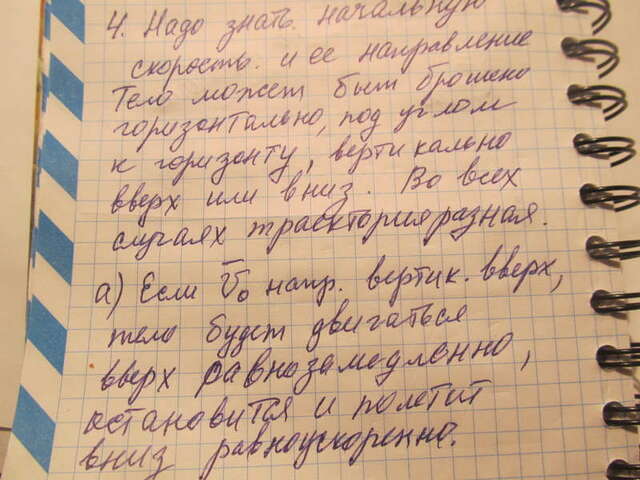 4. Надо знать начальную
скорость и ее направление
Тело может быт брошено
горизонтально, под углом
к горизонту, вертикально
вверх или вниз. Во всех
случаях траектория разная.
а) Если V̄₀ напр. вертик. вверх,
тело будет двигаться
вверх равнозамедленно,
остановится и полетит
вниз равноускоренно.